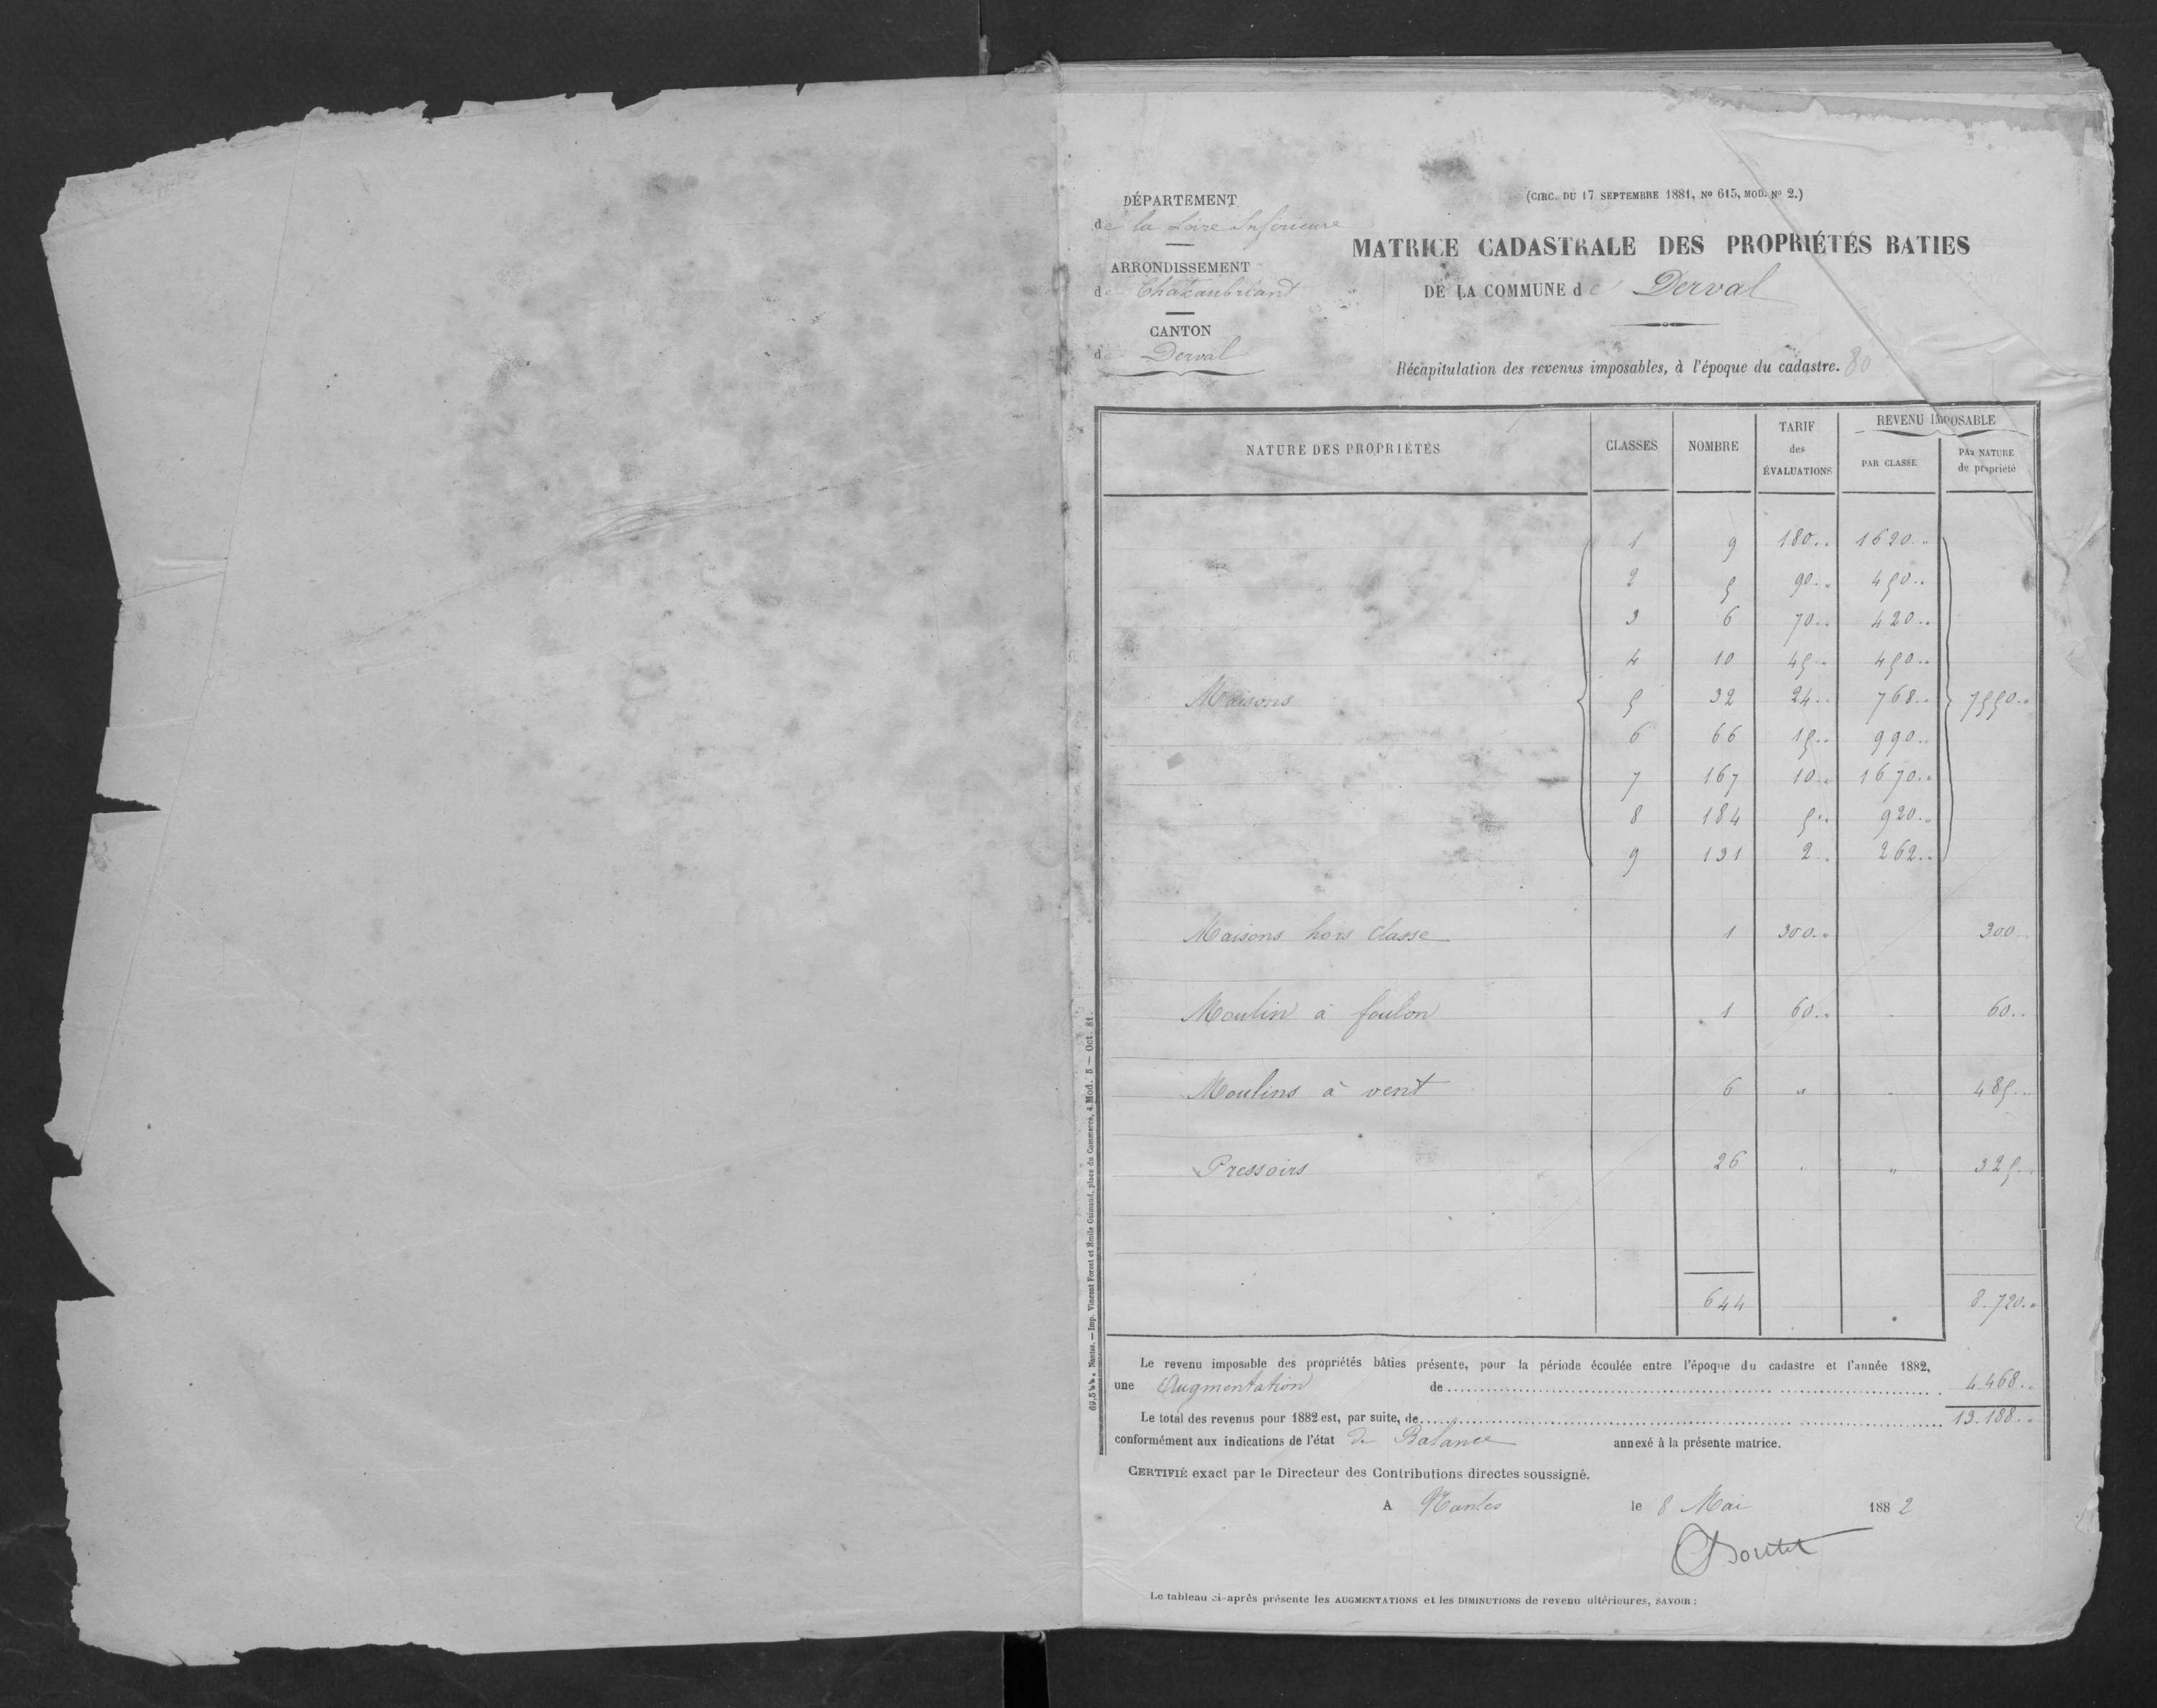 DÉPARTEMENT
de la Loire Inférieure
ARRONDISSEMENT
de Chateaubriant
CANTON
de Derval
(CIRC. DU 17 SEPTEMBRE 1881, No 615, MOD. No 2.)
MATRICE CADASTRALE DES PROPRIÉTÉS BATIES
DE LA COMMUNE de Derval
Récapitulation des revenus imposables, à l'époque du cadastre. 80
NATURE DES PROPRIÉTÉS CLASSES NOMBRE TARIF des ÉVALUATIONS REVENU IMPOSABLE PAR CLASSE PAR NATURE de propriété
1 9 180.. 1620..
2 5 90.. 450..
3 6 70.. 420..
4 10 45.. 450..
Maisons 5 32 24.. 768.. 7550..
6 66 15.. 990..
7 167 10.. 1670..
8 184 5.. 920..
9 131 2.. 262..
Maisons hors classe 1 300.. 300..
Moulin à foulon 1 60.. 60..
Moulins à vent 6 " " 485..
Pressoirs 26 " " 325..
644 8.720..
Le revenu imposable des propriétés bâties présente, pour la période écoulée entre l'époque du cadastre et l'année 1882,
une Augmentation de 4.468..
Le total des revenus pour 1882 est, par suite, de 13.188..
conformément aux indications de l'état de Balance annexé à la présente matrice.
CERTIFIÉ exact par le Directeur des Contributions directes soussigné.
A Nantes le 8 Mai 1882
Le tableau ci-après présente les AUGMENTATIONS et les DIMINUTIONS de revenu ultérieures, SAVOIR :
Nantes. — Imp. Vincent Forest et Émile Grimaud, place du Commerce, 4. Mod. 5 — Oct. 81.